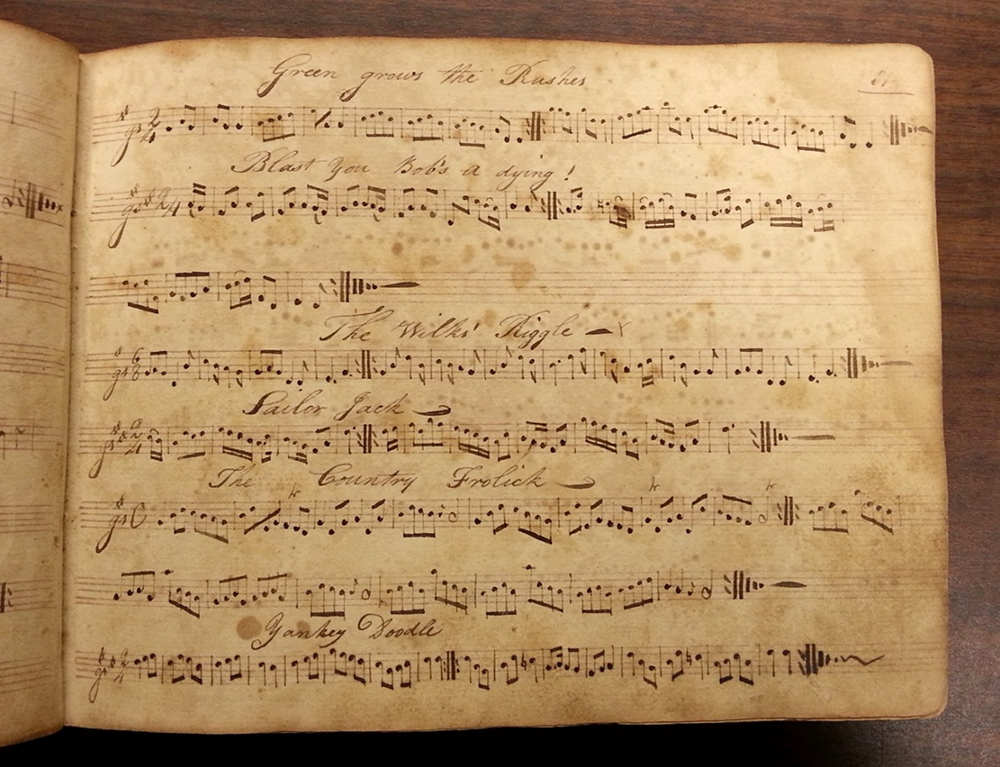 Green grows the Rushes
Blast you Bob's a dying!
The Wilks' Riggle
Sailor Jack
The Country Frolick
Yankey Doodle